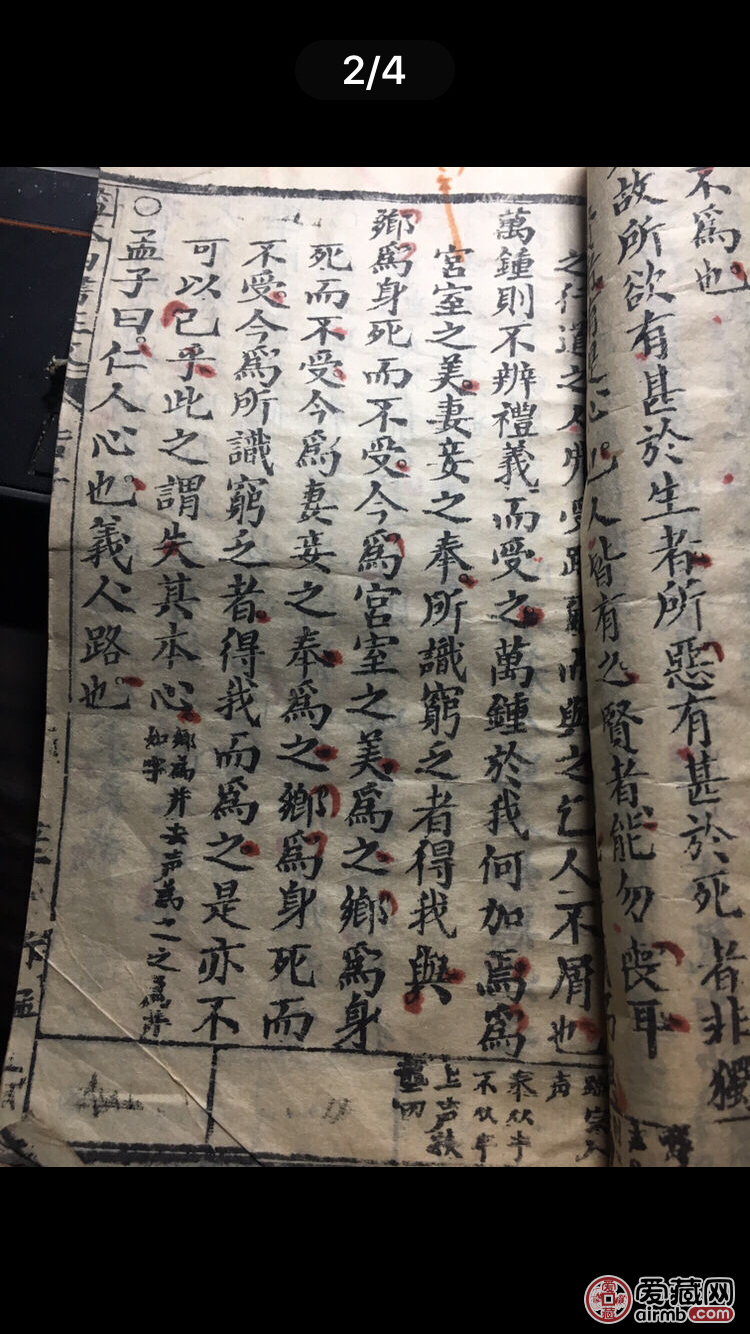 2/4
不爲也
故所欲有甚於生者所惡有甚於死者非獨
心也人皆有之賢者能勿喪耳
之行道之人弗受蹴爾而與之乞人不屑也
萬鍾則不辨禮義而受之萬鍾於我何加焉爲
宮室之美妻妾之奉所識窮乏者得我與
鄉爲身死而不受今爲宮室之美爲之鄉爲身
死而不受今爲妻妾之奉爲之鄉爲身死而
不受今爲所識窮乏者得我而爲之是亦不
可以已乎此之謂失其本心
鄉爲並去声爲之之爲並
如字
○孟子曰仁人心也義人路也
声
不从半
上声
爱藏网
airmb.com